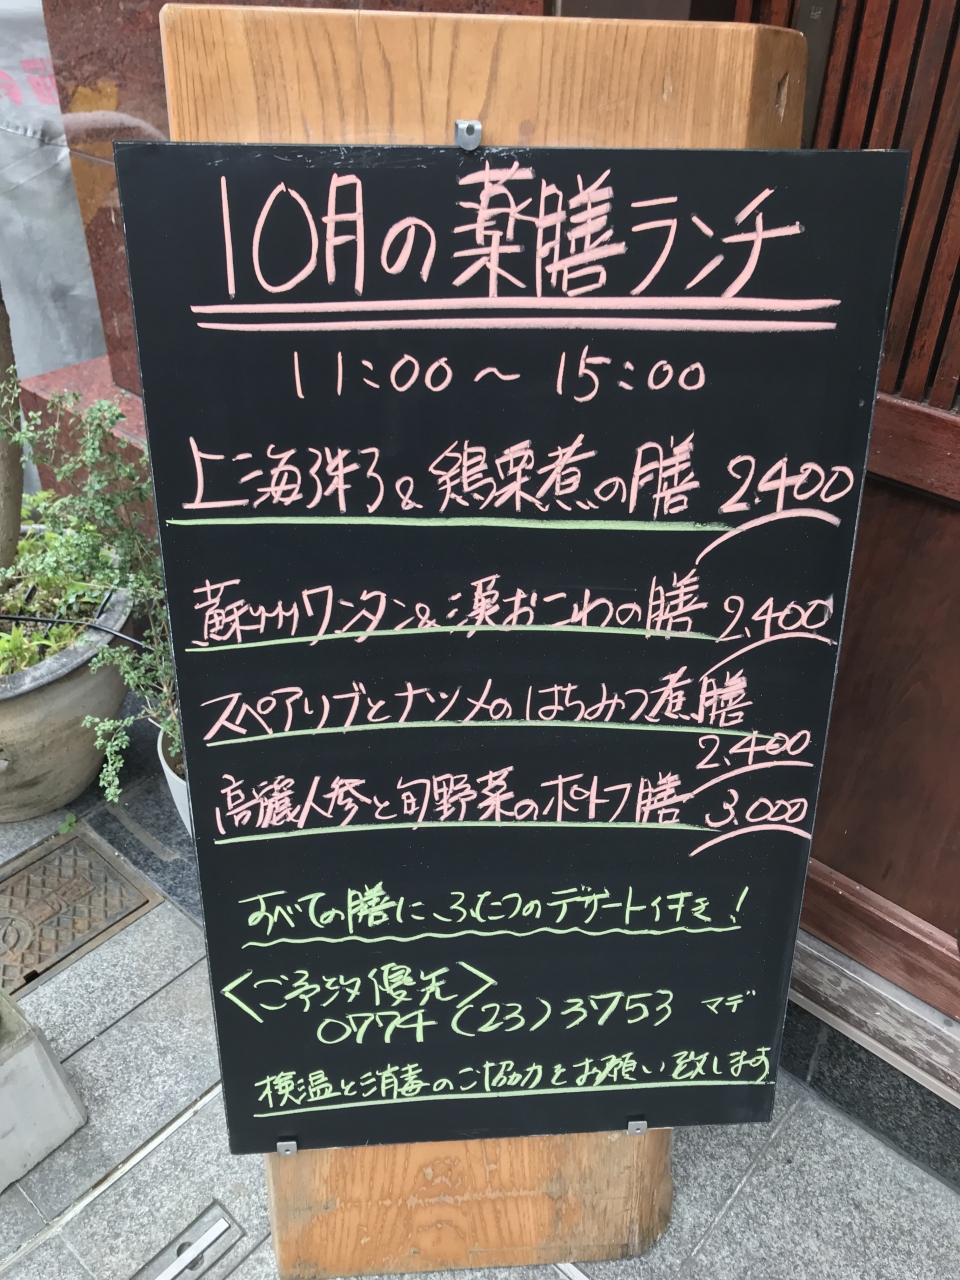 10月の薬膳ランチ
11:00〜15:00
上海狮子&鶏栗煮の膳 2.400
蘇州ワンタン&漢おこわの膳 2.400
スペアリブとナツメのはちみつ煮膳
2.400
高麗人参と旬野菜のポトフ膳 3.000
すべての膳に、ふたつのデザート付き!
<ご予約優先>
0774(23)3753 マデ
検温と消毒のご協力をお願い致します